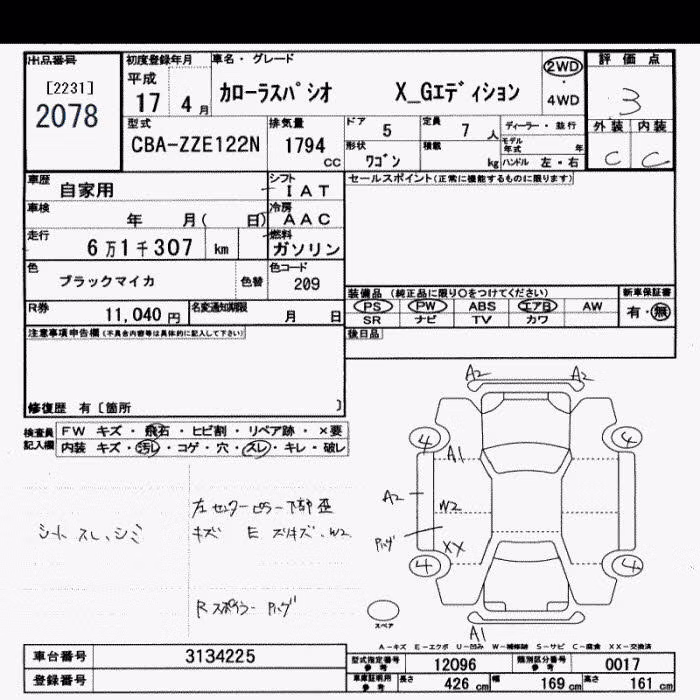 出品番号
[2231]
2078
初度登録年月
平成
17 4 月
車名・グレード
カローラスパシオ X_Gエディション
2WD
4WD
評価点
3
外装 内装
C C
型式
CBA-ZZE122N
排気量
1794
CC
ドア 5
定員 7 人
形状
ワゴン
積載
kg
ディーラー・並行
モデル年式 年
ハンドル 左・右
車歴
自家用
シフト
IAT
車検
年 月( 日)
冷房
AAC
走行
6万1千307 km
燃料
ガソリン
色
ブラックマイカ
色替
色コード
209
R券
11,040 円
名変通知期限
月 日
セールスポイント(正常に機能するものに限ります)
装備品 (純正品に限り○をつけてください)
PS PW ABS エアB AW
SR ナビ TV カワ
新車保証書
有・無
後日品
注意事項申告欄(不具合内容等は具体的に記入して下さい)
修復歴 有〔箇所 〕
検査員記入欄
FW キズ・飛石・ヒビ割・リペア跡・×要
内装 キズ・汚レ・コゲ・穴・スレ・キレ・破レ
シート スレ、シミ
左センターピラー下部歪
キズ E スリキズ、W2
Rスポイラー ハゲ
A2 A2
4 4
A1
A2
W2
ハゲ
XX
4 4
A1
スペア
A-キズ E-エクボ U-凹み W-補修跡 S-サビ C-腐食 XX-交換済
車台番号 3134225
登録番号
型式指定番号 参考 12096
類別区分番号 参考 0017
車庫証明用 参考 長さ 426 cm 幅 169 cm 高さ 161 cm